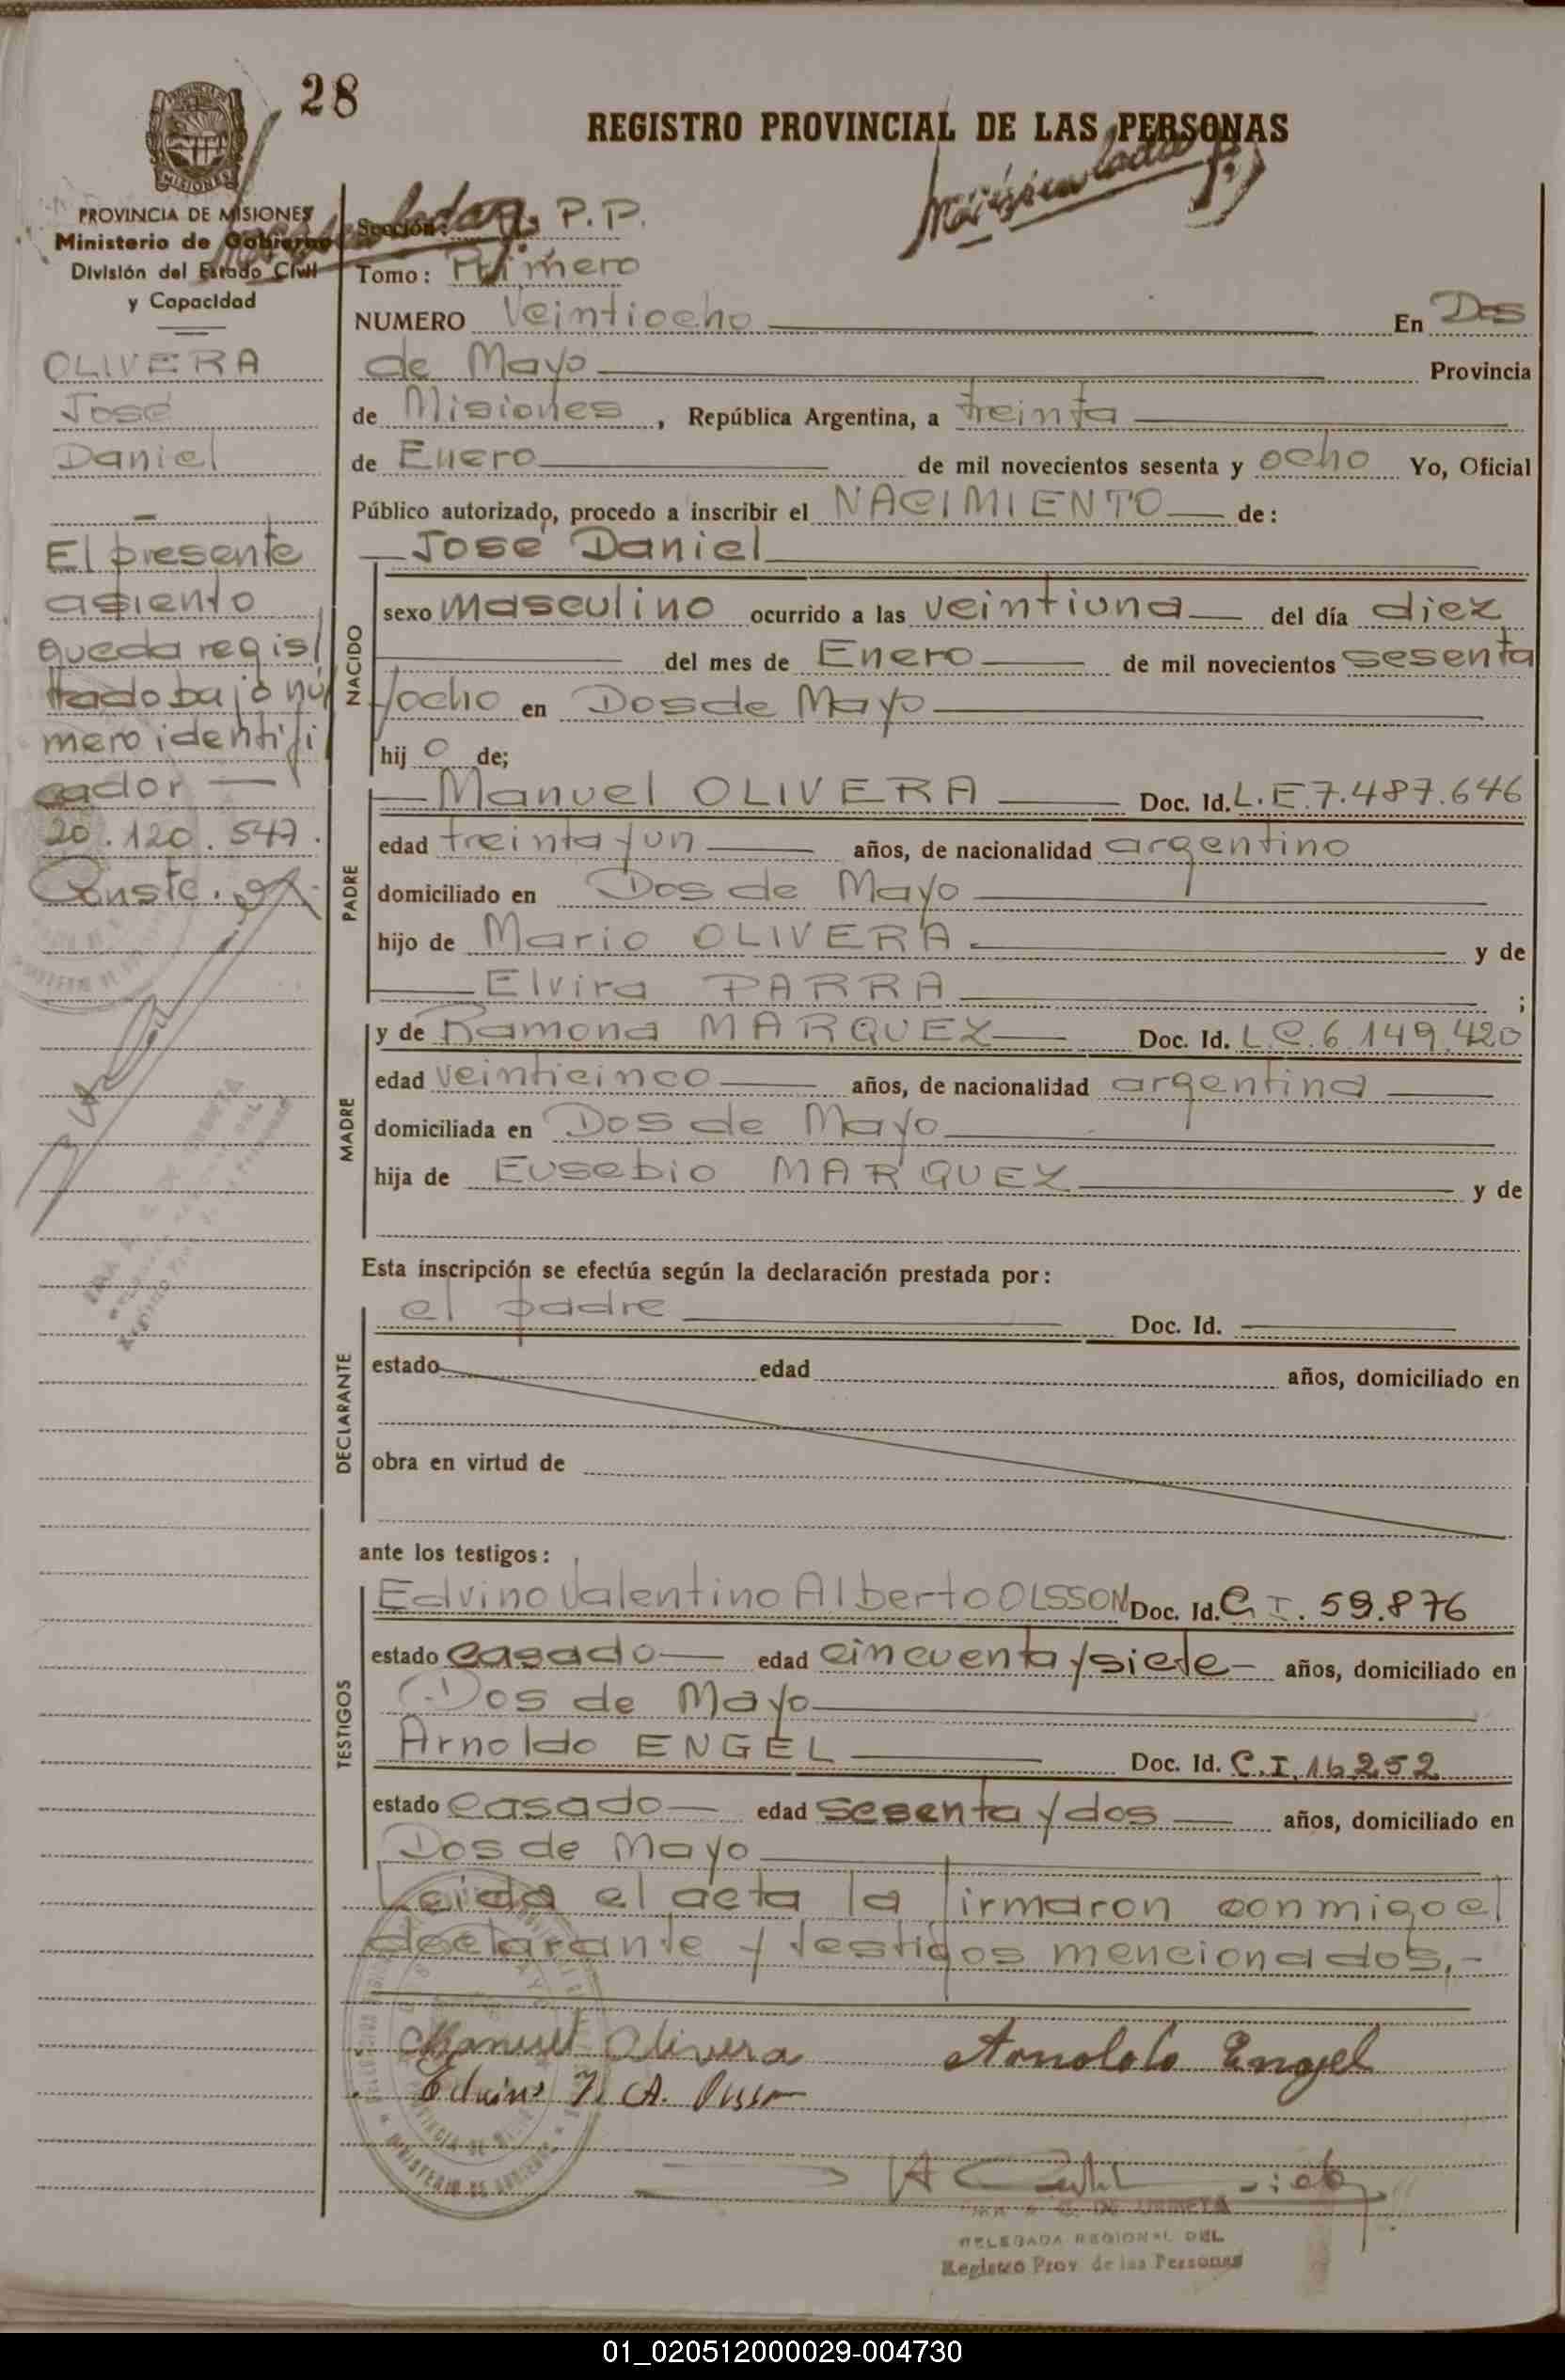 28
REGISTRO PROVINCIAL DE LAS PERSONAS
PROVINCIA DE MISIONES
Ministerio de Gobierno
División del Estado Civil
y Capacidad
OLIVERA
José
Daniel
El presente
asiento
queda regis/
trado bajo nú/
mero identifi
cador —
20.120.547.
Conste.
Sección: P.P.
Tomo: Primero
NUMERO Veintiocho En Dos
de Mayo Provincia
de Misiones, República Argentina, a treinta
de Enero de mil novecientos sesenta y ocho Yo, Oficial
Público autorizado, procedo a inscribir el NACIMIENTO de:
José Daniel
NACIDO
sexo masculino ocurrido a las veintiuna del día diez
del mes de Enero de mil novecientos sesenta
yocho en Dos de Mayo
hij o de;
PADRE
Manuel OLIVERA Doc. Id. L.E.7.487.646
edad treinta y un años, de nacionalidad argentino
domiciliado en Dos de Mayo
hijo de Mario OLIVERA y de
Elvira PARRA ;
MADRE
y de Ramona MARQUEZ Doc. Id. L.C.6.149.420
edad veinticinco años, de nacionalidad argentina
domiciliada en Dos de Mayo
hija de Eusebio MARQUEZ y de
Esta inscripción se efectúa según la declaración prestada por:
DECLARANTE
el padre Doc. Id.
estado edad años, domiciliado en
obra en virtud de
ante los testigos:
TESTIGOS
Edvino Valentino Alberto OLSSON Doc. Id. C.I. 59.876
estado casado edad cincuenta y siete años, domiciliado en
Dos de Mayo
Arnoldo ENGEL Doc. Id. C.I. 16.252
estado casado edad sesenta y dos años, domiciliado en
Dos de Mayo
Leida el acta la firmaron conmigo el
declarante y testigos mencionados.-
Manuel Olivera Arnoldo Engel
DELEGADA REGIONAL DEL
Registro Prov. de las Personas
01_020512000029-004730